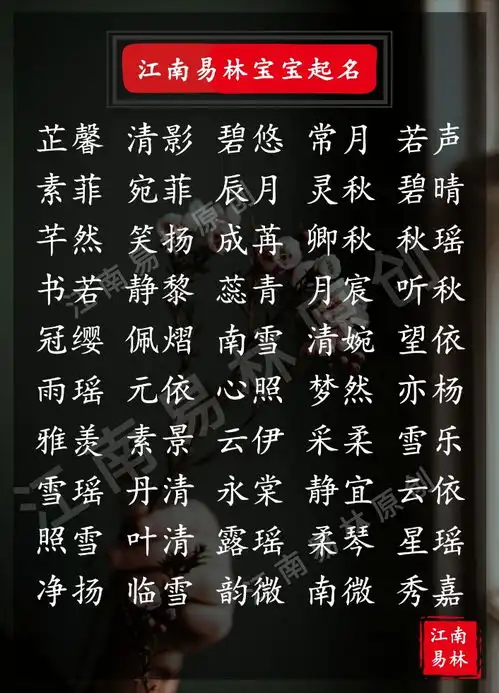 江南易林宝宝起名
芷馨 清影 碧悠 常月 若声
素菲 宛菲 辰月 灵秋 碧晴
芊然 笑扬 成苒 卿秋 秋瑶
书若 静黎 蕊青 月宸 听秋
冠缨 佩熠 南雪 清婉 望依
雨瑶 元依 心照 梦然 亦杨
雅羡 素景 云伊 采柔 雪乐
雪瑶 丹清 永棠 静宜 云依
照雪 叶清 露瑶 柔琴 星瑶
净扬 临雪 韵微 南微 秀嘉
江南易林原创
江南易林原创
江南易林原创
江南
易林